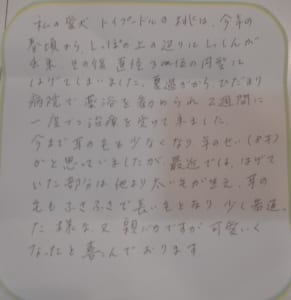 私の愛犬 トイプードルの は、今年の
春頃から しっぽの上の辺りにしっしんが
出来、その後 直径3cm位の円型に
はげてしまいました。夏過ぎから、ひだまり
病院で薬浴を勧められ2週間に
一度づつ治療を受けて来ました。
今まで耳の毛も少なくなり年のせい(8才)
かと思っていましたが、最近では、はげて
いた部分は他より太い毛が生え、耳の
毛もふさふさで長い毛となり 少し若返っ
た様な、又 親バカですが可愛いく
なったと喜んでおります